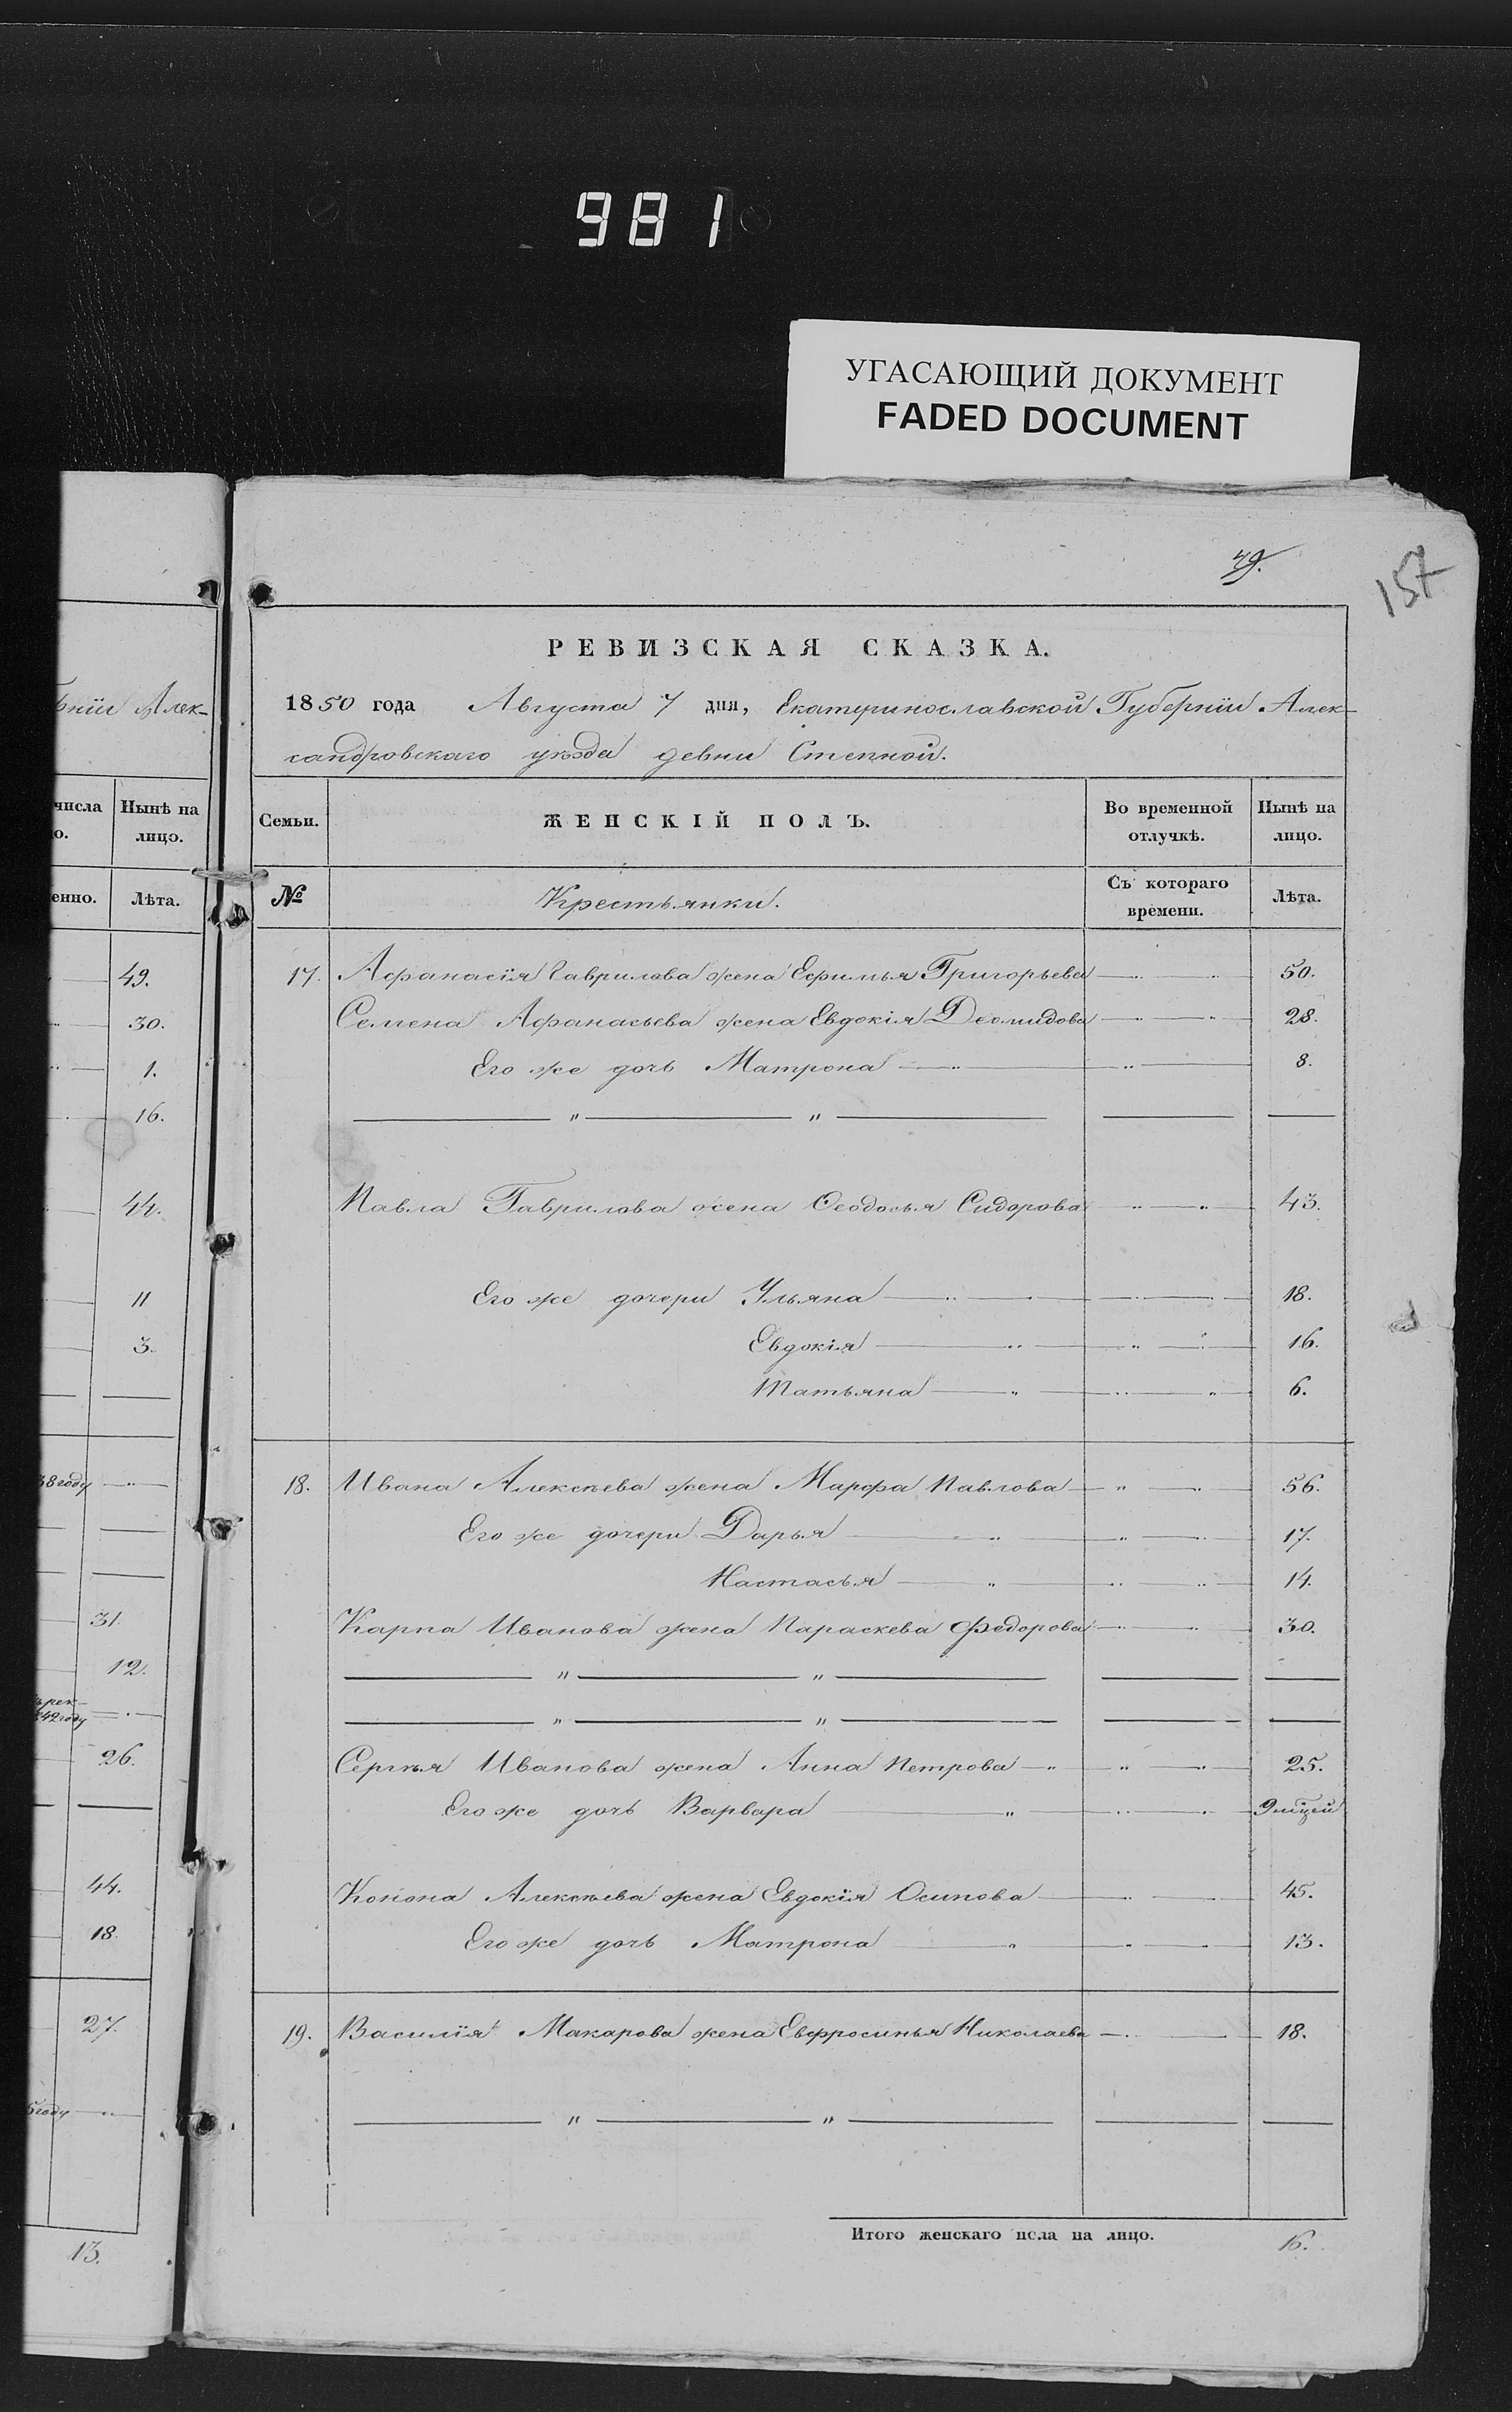 981
УГАСАЮЩИЙ ДОКУМЕНТ
FADED DOCUMENT
49.
157
РЕВИЗСКАЯ СКАЗКА.
1850 года Августа 7 дня, Екатеринославской Губерніи Алек-
сандровскаго уѣзда девни Степной.
Семьи. ЖЕНСКІЙ ПОЛЪ. Во временной отлучкѣ. Нынѣ на лицо.
№ Крестьянки. Съ котораго времени. Лѣта.
17. Афанасія Гаврилова жена Ефимья Григорьева 50.
Семена Афанасьева жена Евдокія Деомидова 28.
Его же дочь Матрона 8.
Павла Гаврилова жена Ѳеодосья Сидорова 43.
Его же дочери Ульяна 18.
Евдокія 16.
Татьяна 6.
18. Ивана Алексѣева жена Марфа Павлова 56.
Его же дочери Дарья 17.
Настасья 14.
Карпа Иванова жена Параскева Федорова 30.
Сергѣя Иванова жена Анна Петрова 25.
Его же дочь Варвара 9 мѣцей
Конона Алексѣева жена Евдокія Осипова 45.
Его же дочь Матрона 13.
19. Василія Макарова жена Евфросинья Николаева 18.
Итого женскаго пола на лицо. 16.
рніи Алек-
числа Нынѣ на
о. лицо.
енно. Лѣта.
49.
30.
1.
16.
44.
11
3.
38 году
31.
12.
рек-
42 году
26.
44.
18.
27.
5 году
13.